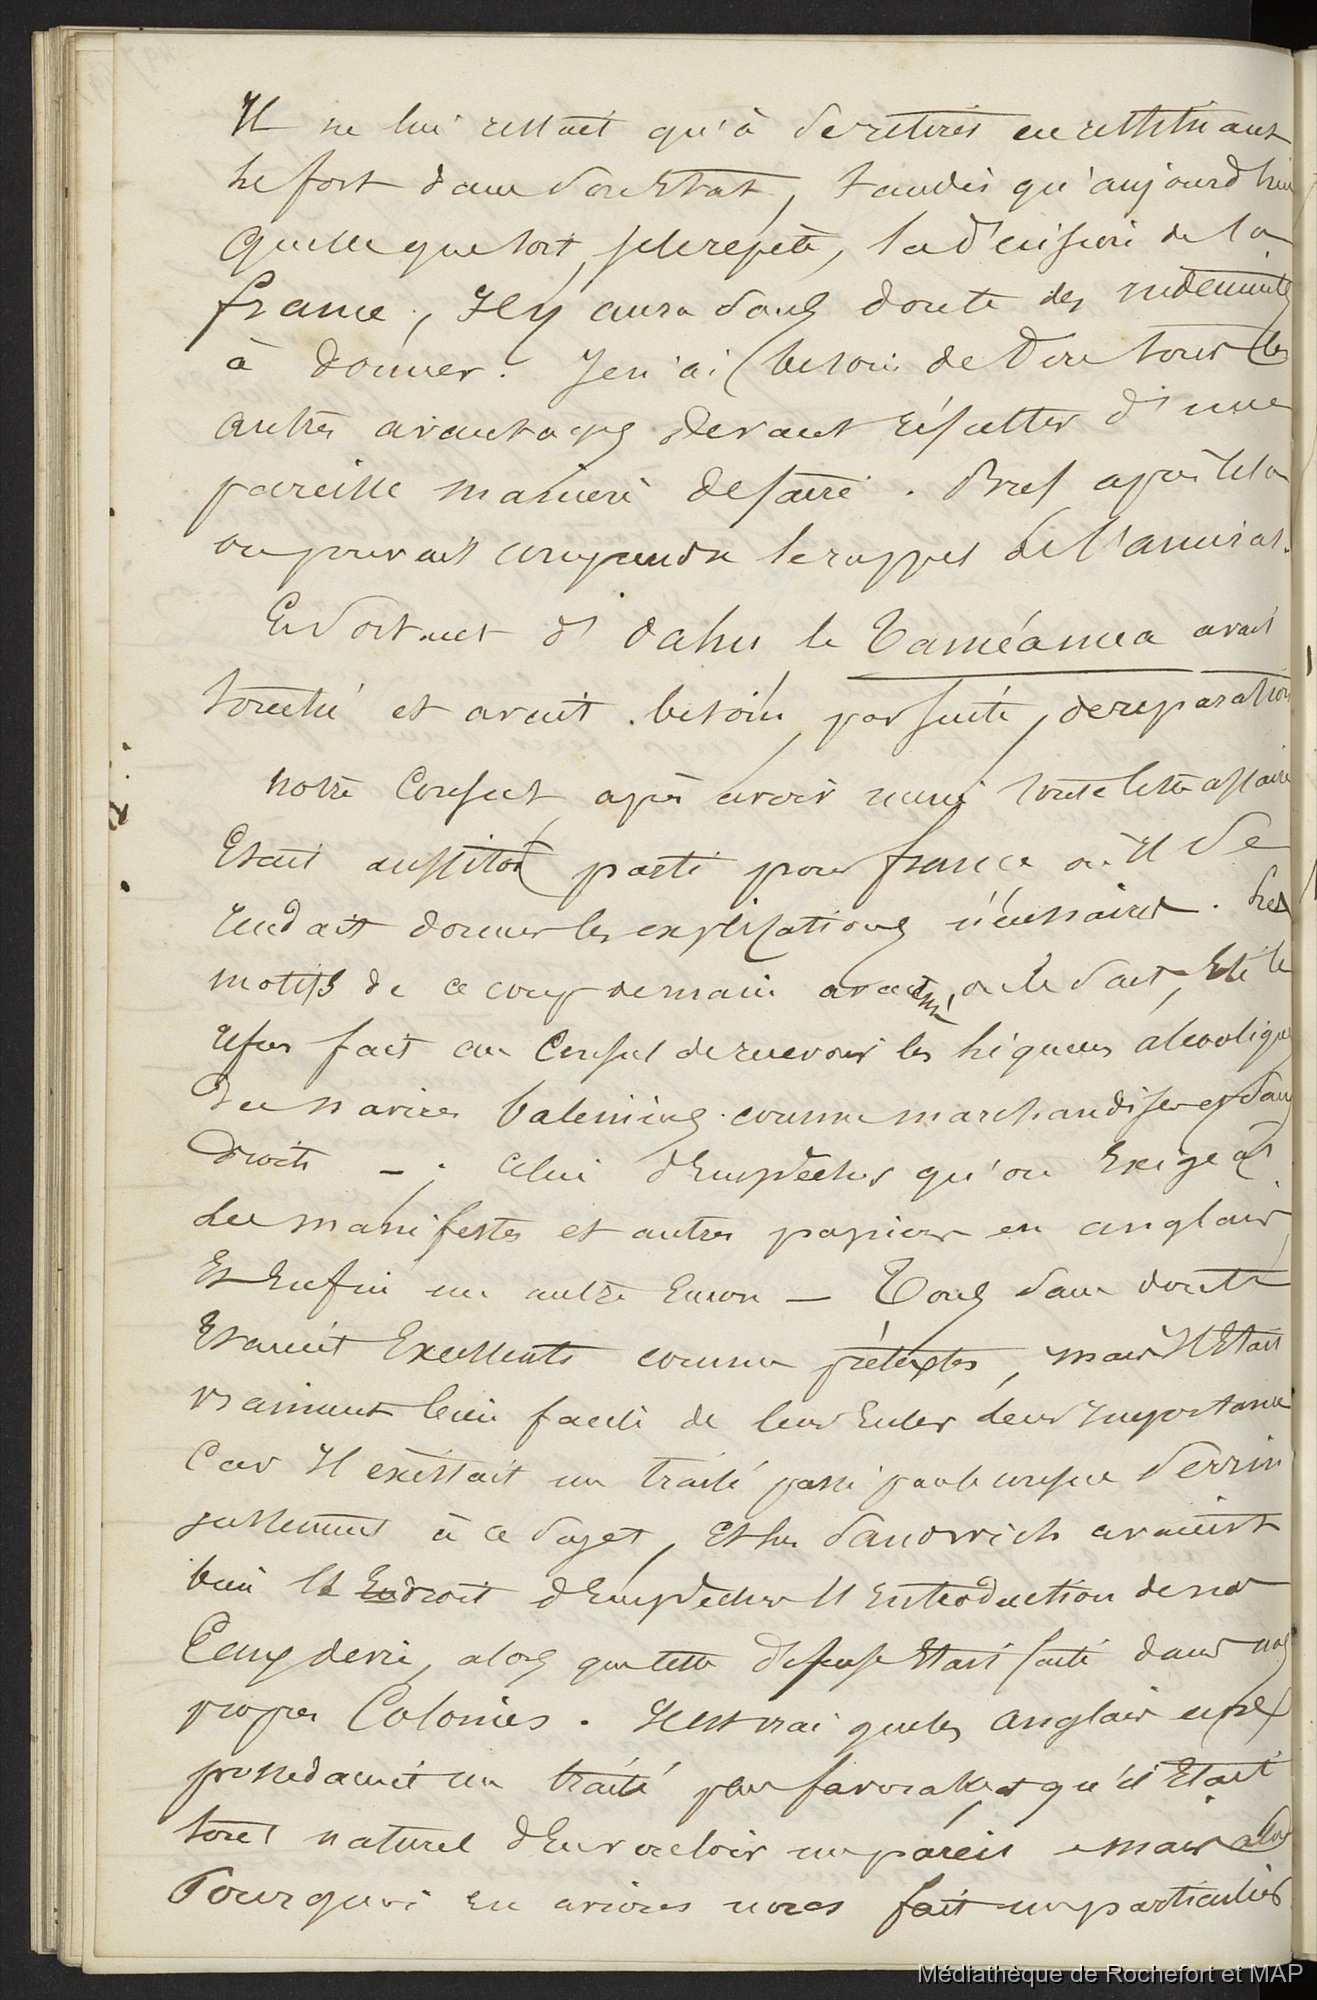 Il ne lui restait qu'à se retirer en restituant
le fort dans son Etat, tandis qu'aujourd'hui
quelle que soit, je le repète, la décision de la
france, Il y aura sans doute des indemnités
à donner. Je n'ai besoin de dire tous les
autres avantages devant résulter d'une
pareille manière de faire. Bref après cela
on pouvait comprendre le rappel de l'amiral.
En sortant d'Oahu le Taméaméa avait
touché et avait besoin, par suite, de réparations
notre Consul, après avoir mené toute cette affaire
Etait aussitôt parti pour france où Il se
rendait donner les explications nécessaires. Les
motifs de ce coup de main avaient, on le sait, Eté le
refus fait au Consul de recevoir les liqueurs alcooliques
des navires baleiniers comme marchandises et sans
droits — ; celui d'Empêcher qu'on Exigeât
des manifestes et autres papiers en anglais
Et Enfin un autre Encore — Tous sans doute
Etaient Excellents comme prétextes, mais Il Etait
vraiment bien facile de leur Enlever leur Importance
Car Il existait un traité passé par le consul Perrin
justement à ce sujet, Et les Sandwich avaient
bien le droit d'Empêcher l'Introduction de nos
Eaux de vie, alors que cette défense Etait faite dans nos
propres Colonies. Il est vrai que les anglais eux
possedaient un traité plus favorable et qu'il Etait
tout naturel d'En vouloir un pareil mais alors
Pourquoi en avions nous fait un particulier
Médiathèque de Rochefort et MAP